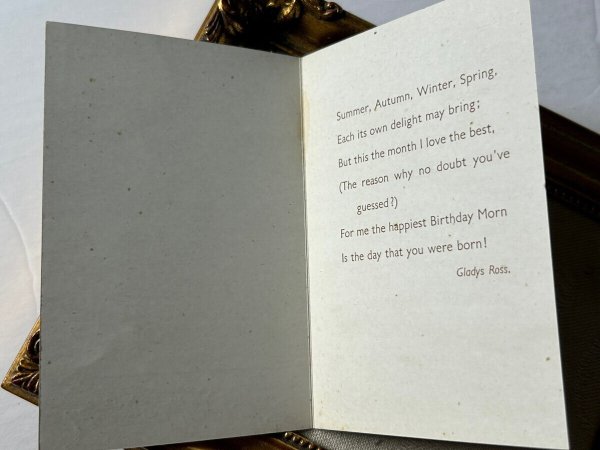 Summer, Autumn, Winter, Spring,
Each its own delight may bring;
But this the month I love the best,
(The reason why no doubt you've
guessed?)
For me the happiest Birthday Morn
Is the day that you were born!
Gladys Ross.